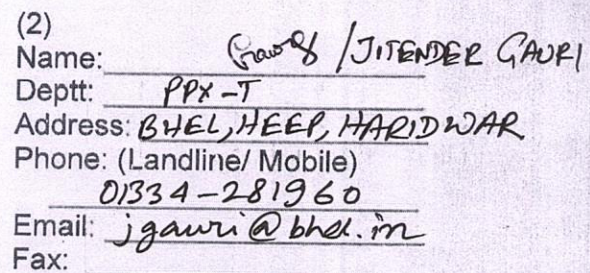 (2)
Name: /JITENDER GAURI
Deptt: PPX-T
Address: BHEL, HEEP, HARIDWAR
Phone: (Landline/ Mobile)
01334-281960
Email: jgauri@bhel.in
Fax: